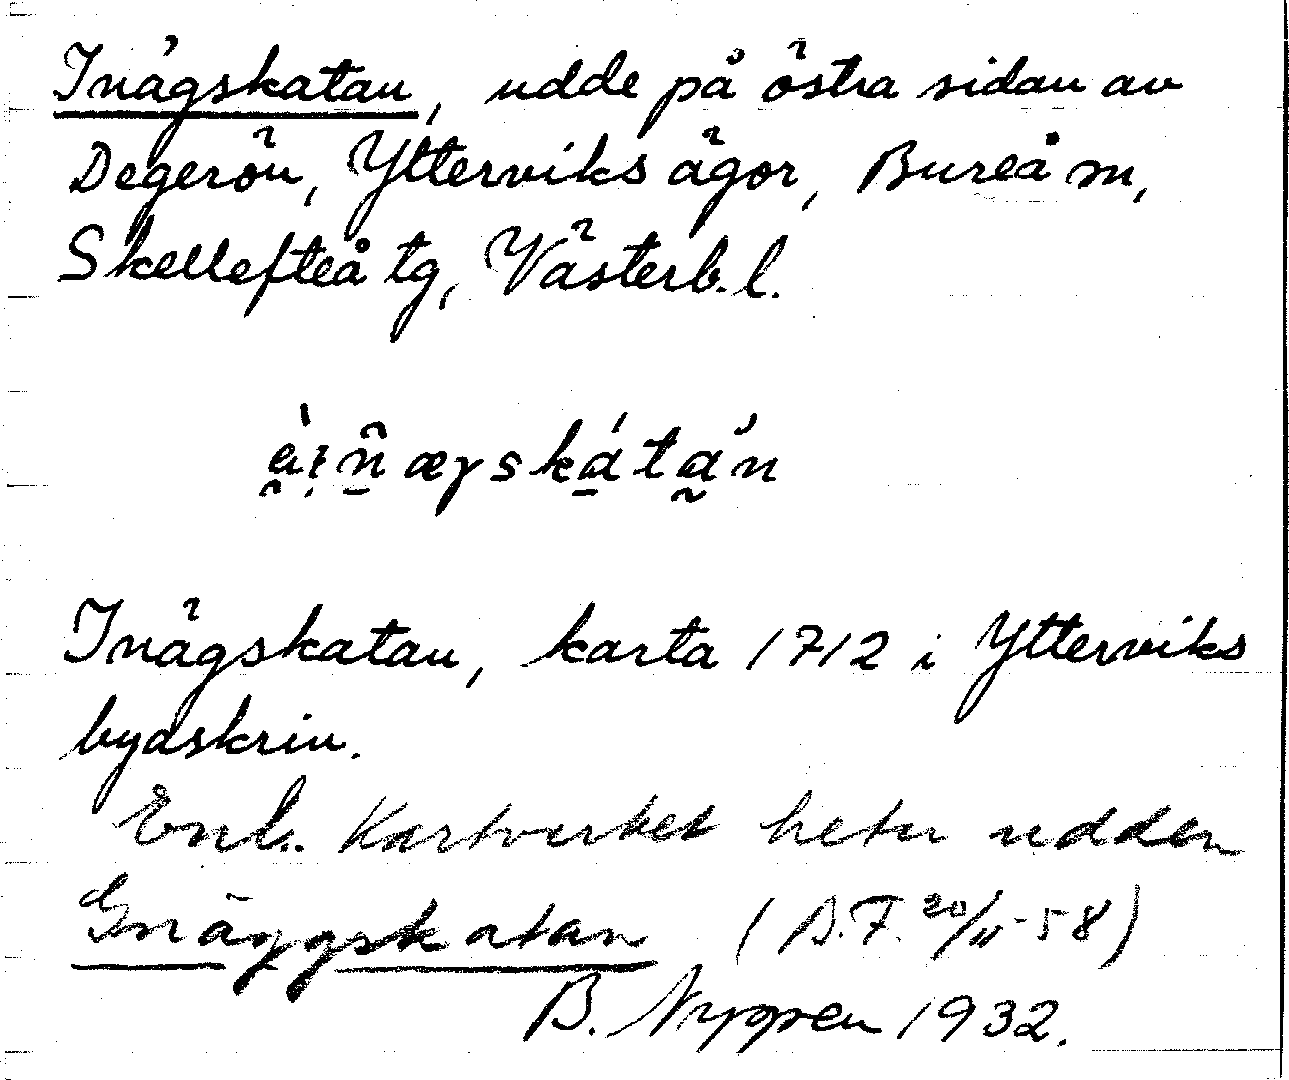 Inägskatan, udde på östra sidan av
Degerön, Ytterviks ägor, Bureå sn,
Skellefteå tg, Västerb. l.
Inägskatan, karta 1712 i Ytterviks
byaskrin.
Enl. Kartverket heter udden
Gnäggskatan (B.F. 20/11-58)
B. Nygren 1932.